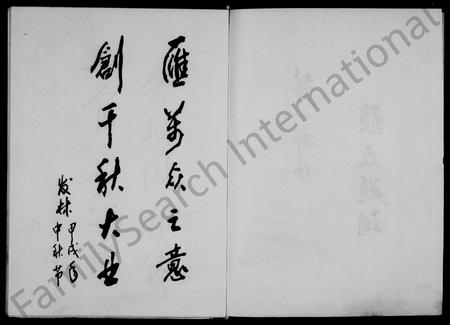 匯萬众之意
創千秋大业
发林 甲戌年
中秋节
FamilySearch International